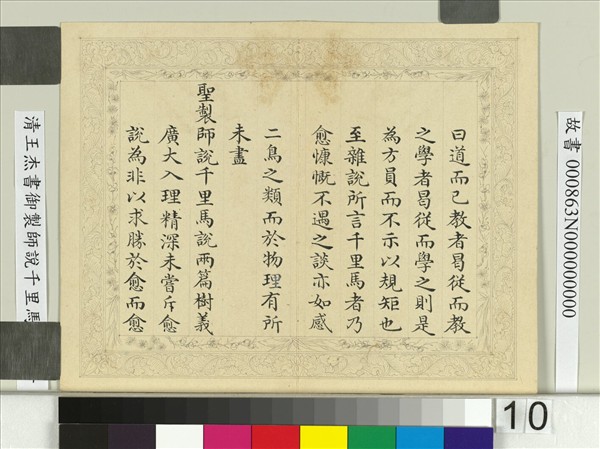 曰道而已教者曷從而教
之學者曷從而學之則是
為方員而不示以規矩也
至雜說所言千里馬者乃
愈慷慨不遇之談亦如感
二鳥之類而於物理有所
未盡
聖製師說千里馬說兩篇樹義
廣大入理精深未嘗斥愈
說為非以求勝於愈而愈
故書 000863N000000000
清王杰書御製師說千里馬
10